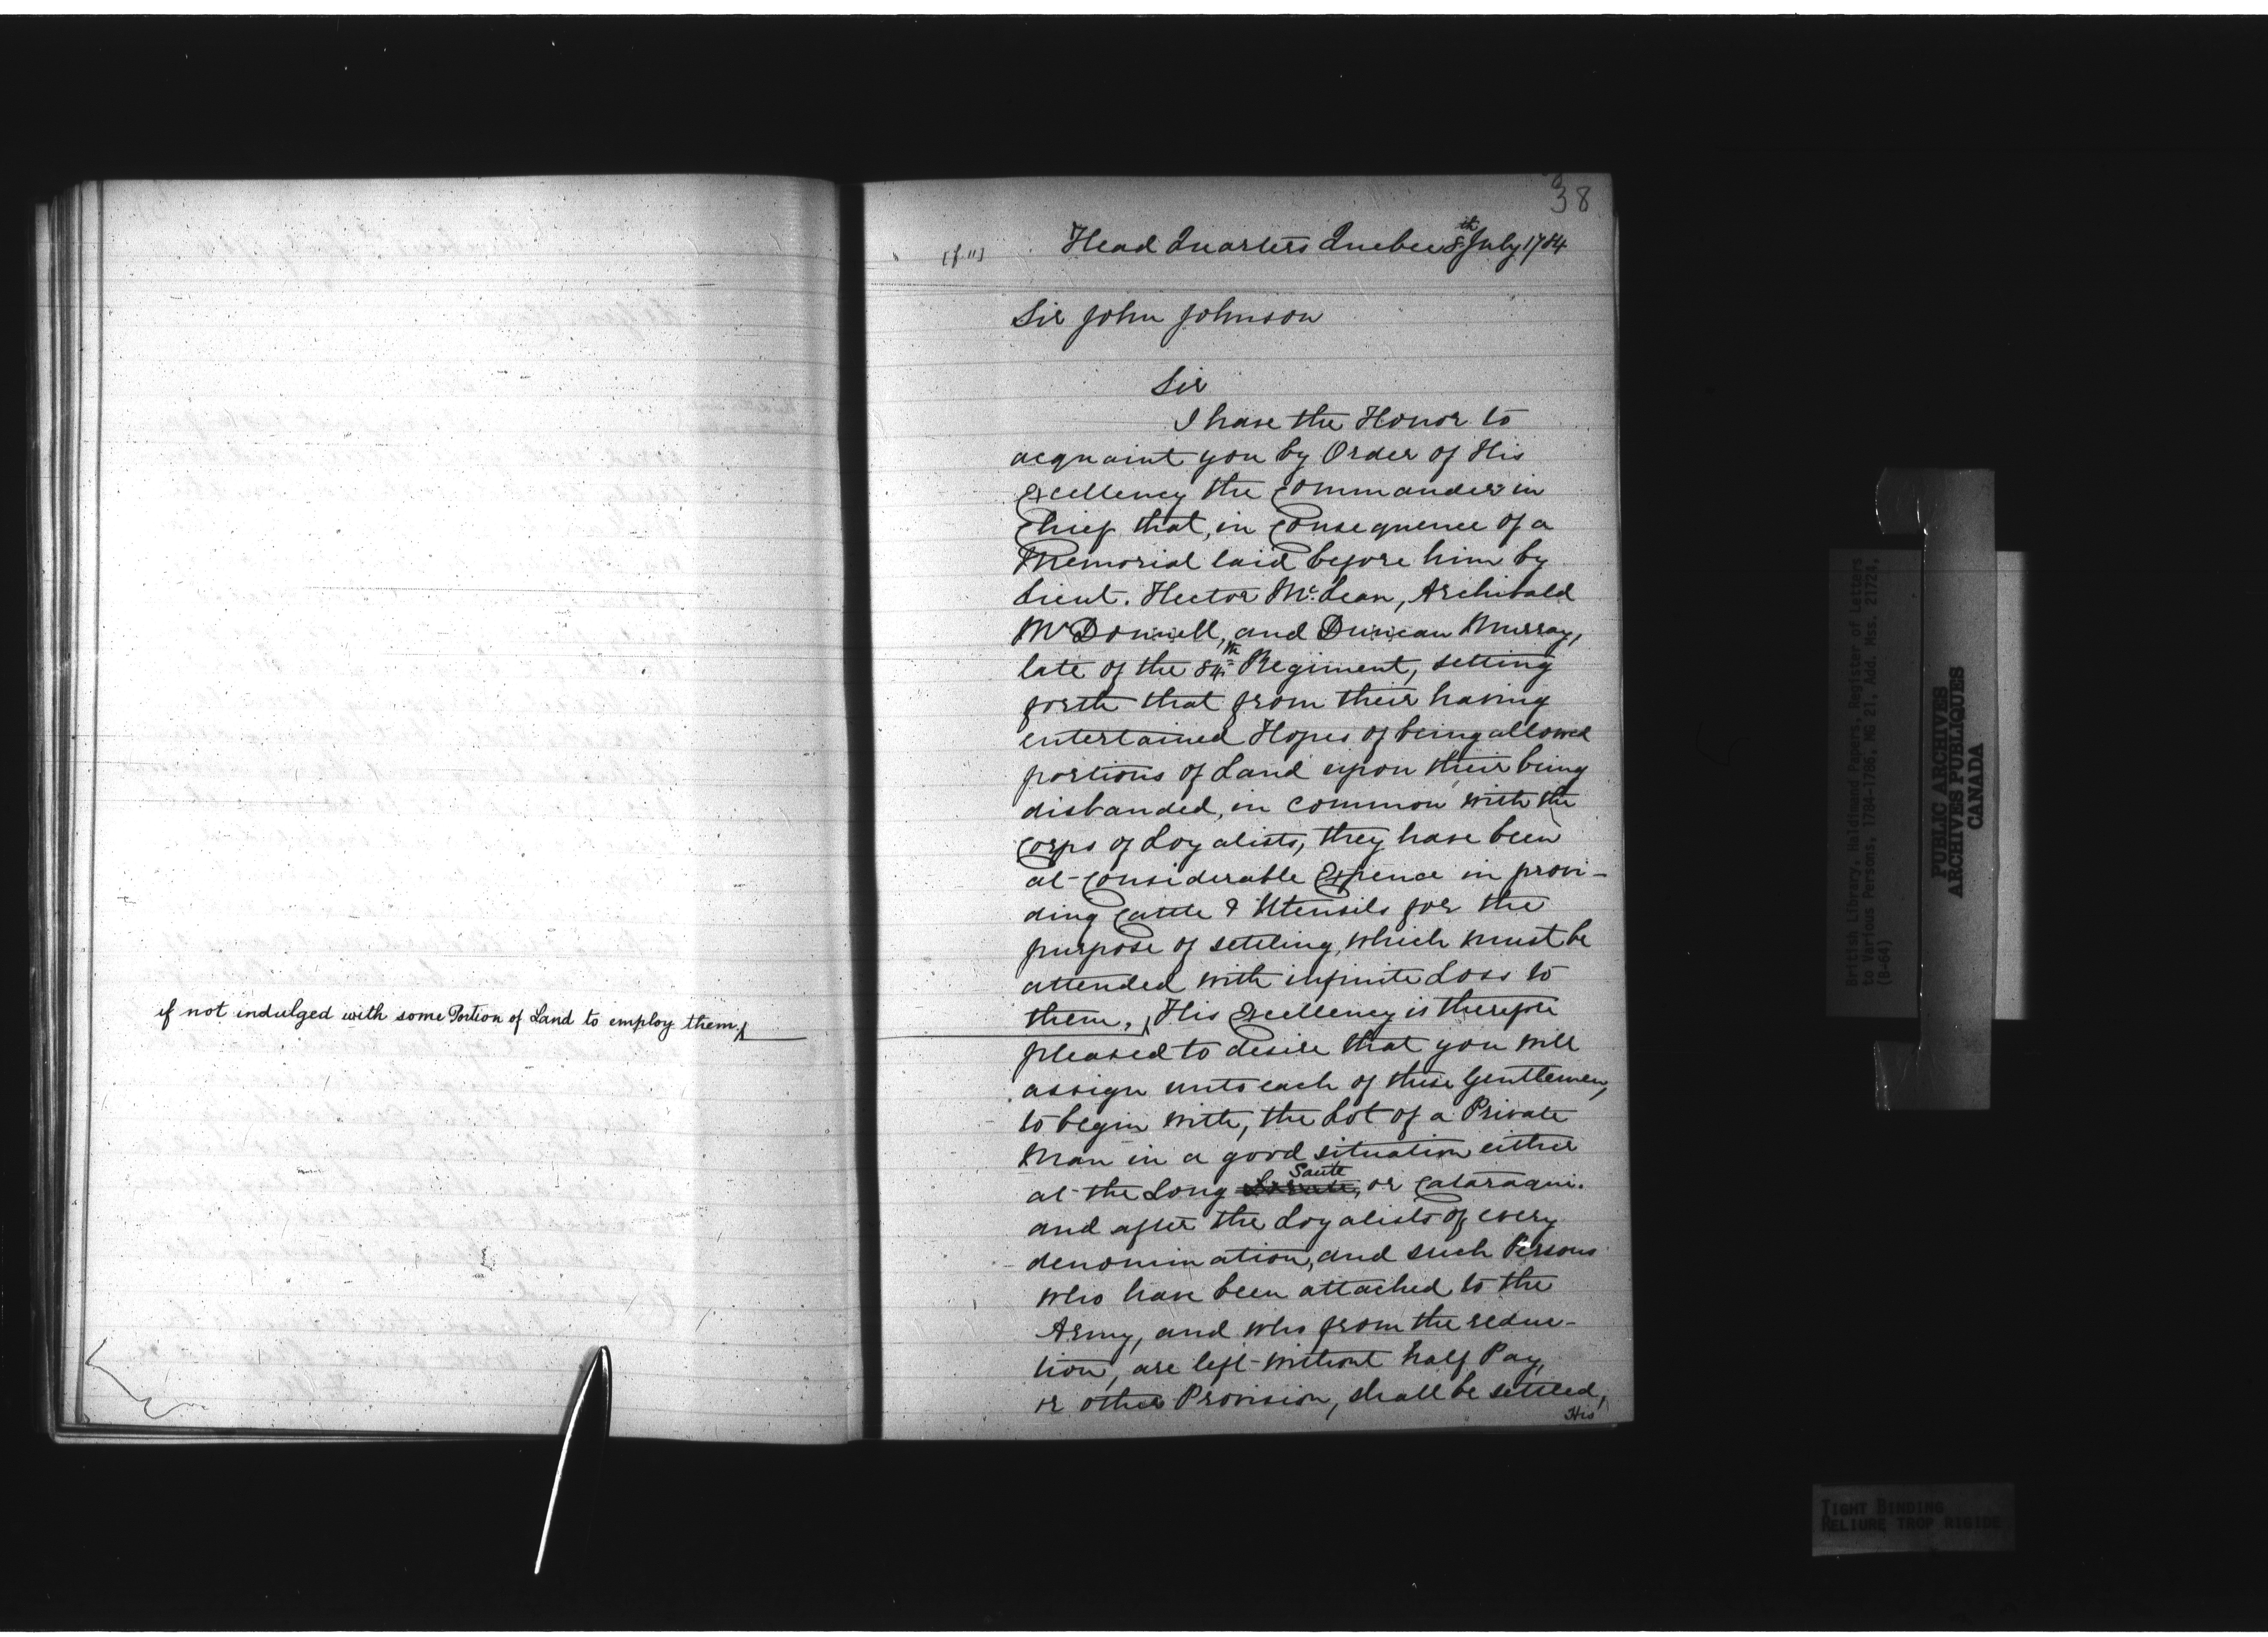 38
[f. 11]
Head Quarters Quebec 8th July 1784
Sir John Johnson
Sir
I have the Honor to
acquaint you by Order of His
Excellency the Commander in
Chief that, in Consequence of a
Memorial laid before him by
Lieut. Hector McLean, Archibald
McDonnell, and Duncan Murray,
late of the 84th Regiment, setting
forth that from their having
entertained Hopes of being allowed
portions of Land upon their being
disbanded, in common with the
Corps of Loyalists, they have been
at considerable Expence in provi-
ding Cattle & Utensils for the
purpose of settling, which must be
attended with infinite Loss to
them, His Excellency is therefore
if not indulged with some Portion of Land to employ them,
pleased to desire that you will
assign unto each of these Gentlemen,
to begin with, the Lot of a Private
Man in a good situation either
at the Long Saute, or Cataraqui.
and after the Loyalists of every
denomination, and such Persons
who have been attached to the
Army, and who from the reduc-
tion, are left without half Pay,
or other Provision, shall be settled,
His
British Library, Haldimand Papers, Register of Letters
to Various Persons, 1784-1786, MG 21, Add. Mss. 21724,
(B-64)
PUBLIC ARCHIVES
ARCHIVES PUBLIQUES
CANADA
TIGHT BINDING
RELIURE TROP RIGIDE